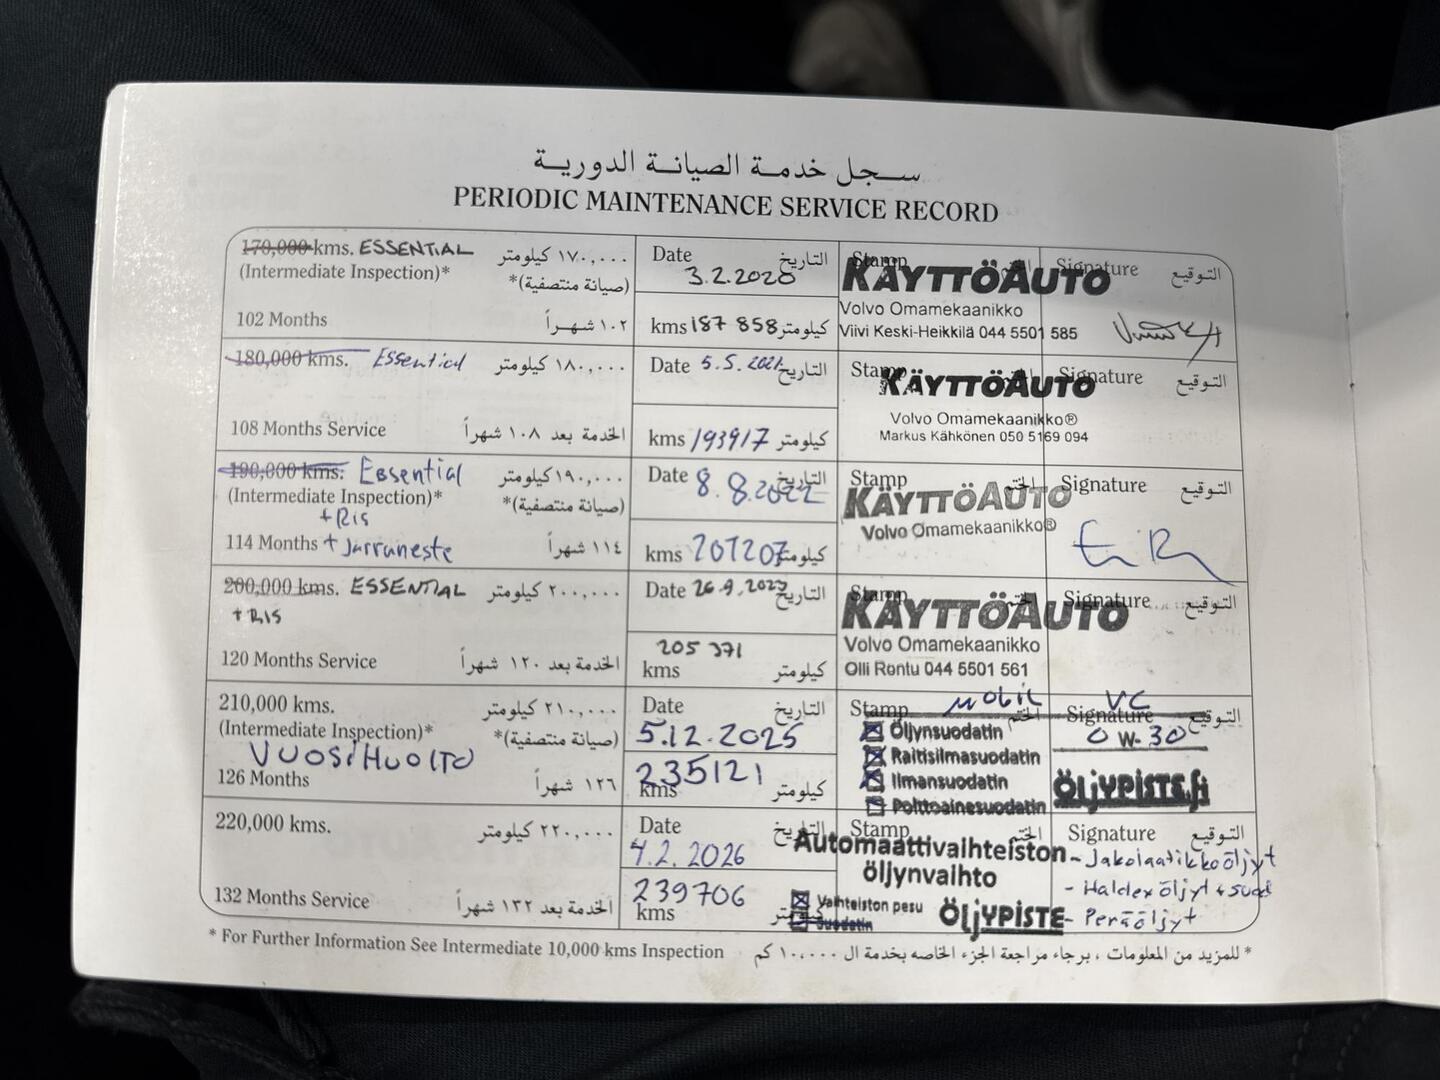 سجل خدمة الصيانة الدورية
PERIODIC MAINTENANCE SERVICE RECORD
170,000 kms. ESSENTIAL ١٧٠,٠٠٠ كيلومتر
(Intermediate Inspection)* (صيانة منتصفية)*
102 Months ١٠٢ شهراً
Date 3.2.2020 التاريخ
kms 187 858 كيلومتر
Stamp الختم Signature التوقيع
KÄYTTÖAUTO
Volvo Omamekaanikko
Viivi Keski-Heikkilä 044 5501 585
180,000 kms. Essential ١٨٠,٠٠٠ كيلومتر
108 Months Service الخدمة بعد ١٠٨ شهراً
Date 5.5.2021 التاريخ
kms 193917 كيلومتر
Stamp Signature التوقيع
KÄYTTÖAUTO
Volvo Omamekaanikko®
Markus Kähkönen 050 5169 094
190,000 kms. Essential ١٩٠,٠٠٠ كيلومتر
(Intermediate Inspection)* (صيانة منتصفية)*
+ RIS
114 Months + Jarruneste ١١٤ شهراً
Date 8.8.2022 التاريخ
kms 201207 كيلومتر
Stamp الختم Signature التوقيع
KÄYTTÖAUTO
Volvo Omamekaanikko®
200,000 kms. ESSENTIAL ٢٠٠,٠٠٠ كيلومتر
+ RIS
120 Months Service الخدمة بعد ١٢٠ شهراً
Date 26.9.2023 التاريخ
205 371
kms كيلومتر
Stamp الختم Signature التوقيع
KÄYTTÖAUTO
Volvo Omamekaanikko
Olli Rontu 044 5501 561
210,000 kms. ٢١٠,٠٠٠ كيلومتر
(Intermediate Inspection)* (صيانة منتصفية)*
VUOSIHUOLTO
126 Months ١٢٦ شهراً
Date التاريخ
5.12.2025
235121
kms كيلومتر
mobil VC
Stamp الختم Signature التوقيع
0 W- 30
Öljynsuodatin
Raitisilmasuodatin
Ilmansuodatin
Polttoainesuodatin
ÖLJYPISTE.fi
220,000 kms. ٢٢٠,٠٠٠ كيلومتر
132 Months Service الخدمة بعد ١٣٢ شهراً
Date التاريخ
4.2.2026
239706
kms كيلومتر
Stamp الختم Signature التوقيع
Automaattivaihteiston
öljynvaihto
Vaihteiston pesu
Suodatin
ÖLJYPISTE
- Jakolaatikkoöljyt
- Haldex öljyt + suod
- Peräöljyt
* For Further Information See Intermediate 10,000 kms Inspection
* للمزيد من المعلومات ، برجاء مراجعة الجزء الخاصه بخدمة ال ١٠,٠٠٠ كم